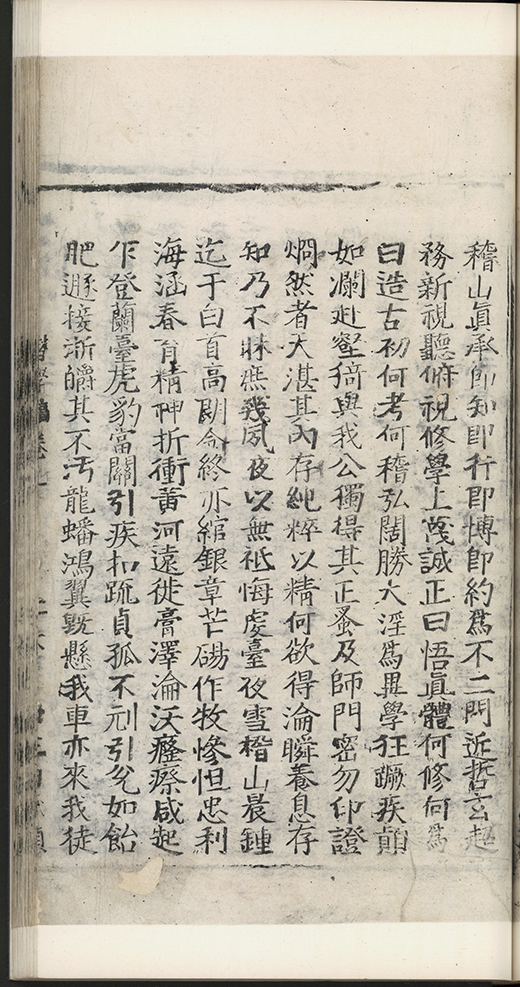 稽山眞承卽知卽行卽博卽約爲不二門近哲玄超
務新視聽俯視修學上蔑誠正曰悟眞體何修何爲
曰造古初何考何稽弘闊勝大淫爲異學狂蹶疾顚
如瀾赴壑猗與我公獨得其正蚤及師門密勿印證
烱然者天湛其內存純粹以精何欲得淪瞬養息存
知乃不昧庶幾夙夜以無祗悔虔臺夜雪稽山晨鍾
迄于白首高朗令終亦綰銀章芒碭作牧慘怛忠利
海涵春育精神折衝黃河遠徙膏澤淪沃癃瘵咸起
乍登蘭臺虎豹當關引疾扣疏貞孤不刓引兌如飴
肥遯接淅皭其不汚龍蟠鴻翼旣懸我車亦來我徒